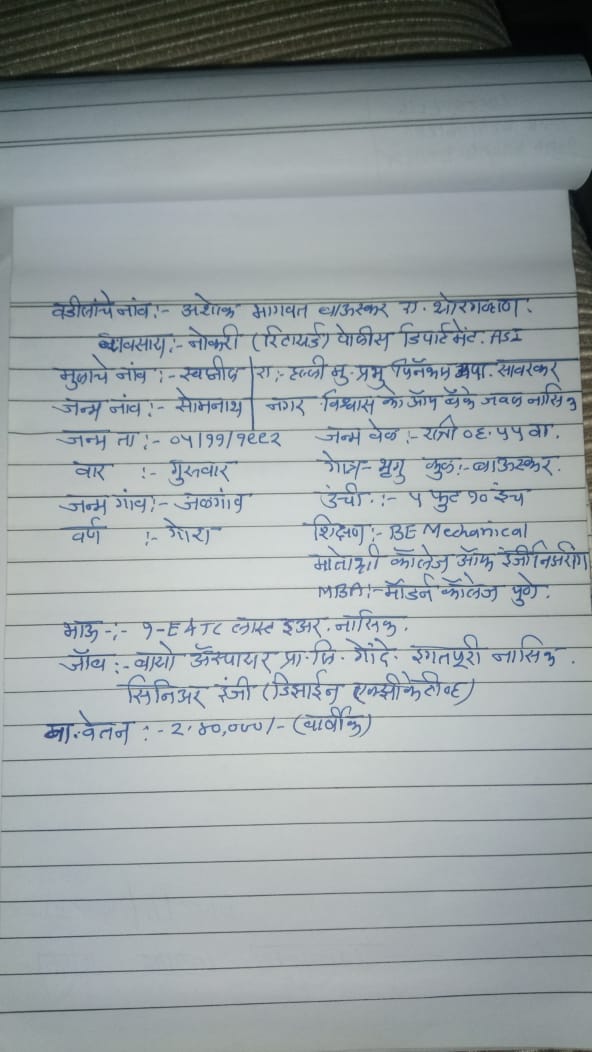 वडीलांचे नांव:- अशोक भागवत बाऊस्कर रा. थोरगव्हाण.
व्यवसाय:- नोकरी (रिटायर्ड) पोलीस डिपार्टमेंट. ASI
मुलाचे नांव :- स्वप्नील रा:- हल्ली मु. प्रभु पिनॅकल अपा. सावरकर
जन्म नांव:- सोमनाथ नगर विश्वास को ऑप बँके जवळ नासिक
जन्म ता:- ०५/११/१९९२ जन्म वेळ:- रात्री ०६.५५ वा.
वार :- गुरुवार गोत्र- भृगु कुळ:- बाऊस्कर.
जन्म गांव:- जळगांव उंची.:- ५ फुट १० इंच
वर्ण :- गोरा शिक्षण:- BE Mechanical
मातोश्री कॉलेज ऑफ इंजीनिअरींग
MBA:- मॉडर्न कॉलेज पुणे.
भाऊ-:- १- E&TC लास्ट इअर. नासिक.
जॉब:- बायो ॲस्पायर प्रा. लि. गोंदे. इगतपूरी नासिक.
सिनिअर इंजी (डिझाईन एक्झीकेटीव्ह)
वा. वेतन :- २,४०,०००/- (वार्षीक)